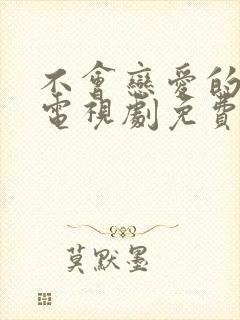 不會戀愛的
電視劇免費
莫默墨